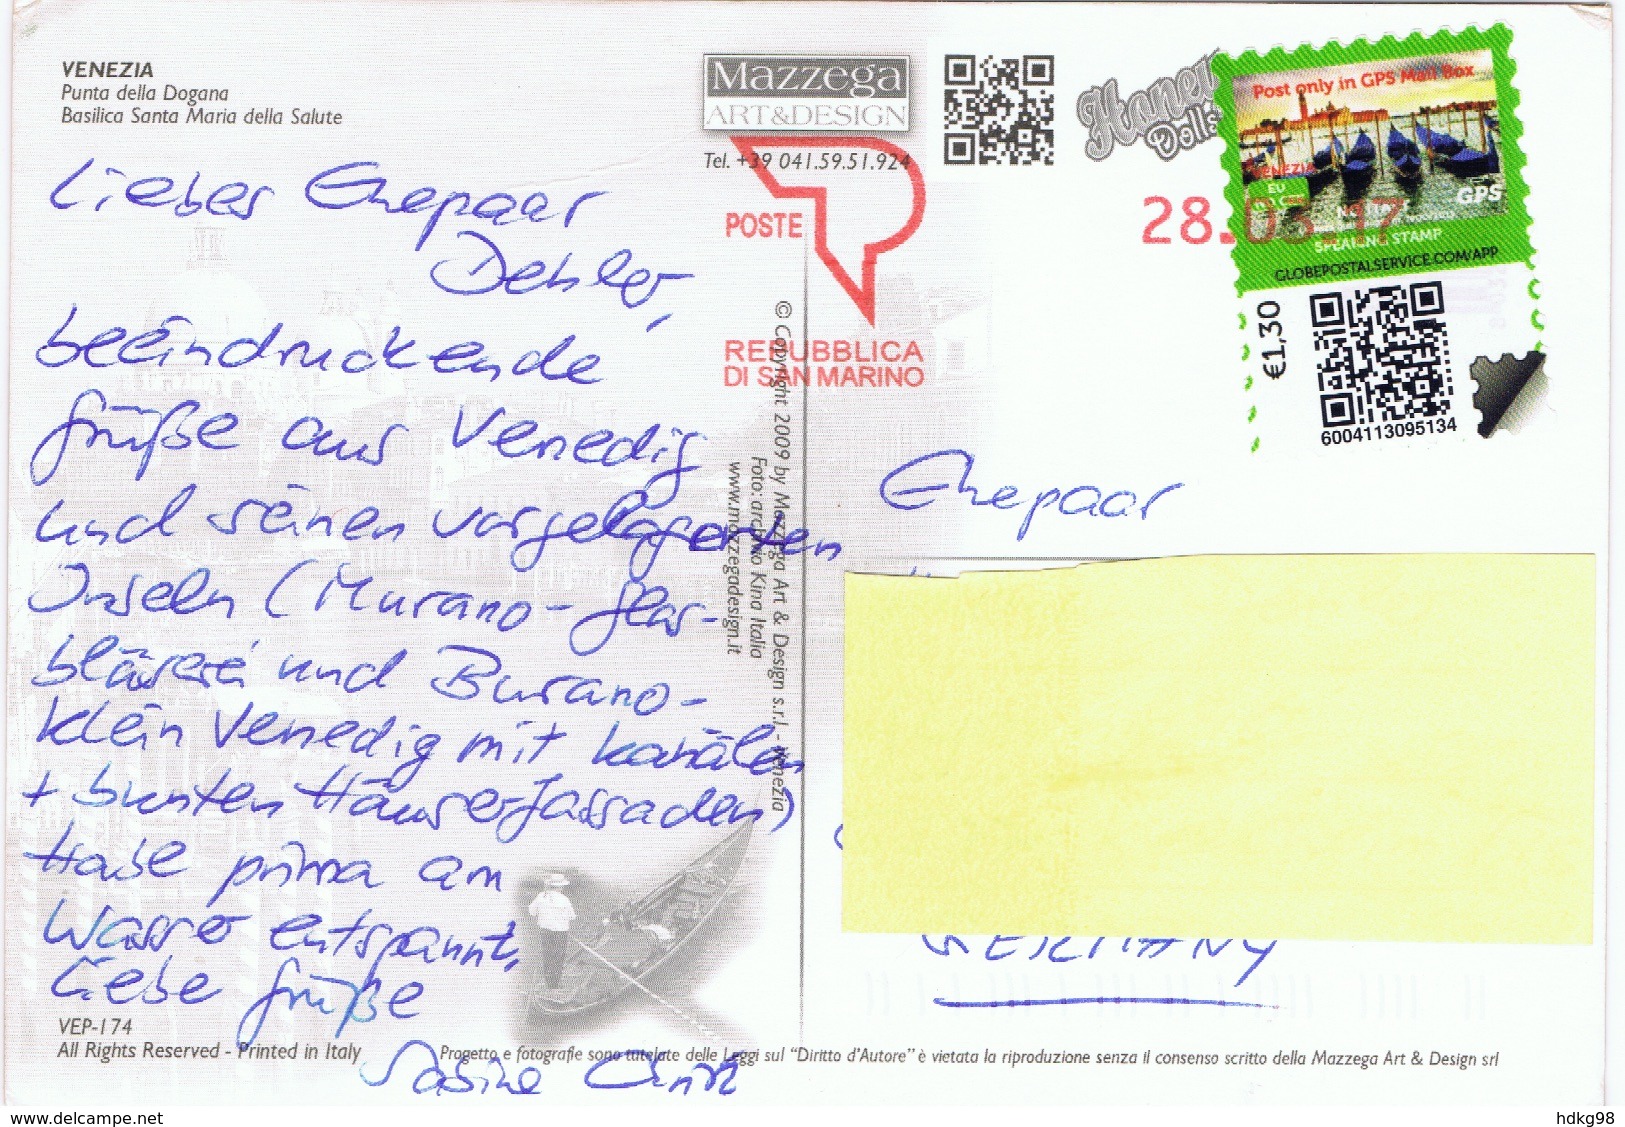 VENEZIA
Punta della Dogana
Basilica Santa Maria della Salute
Mazzega
ART&DESIGN
Tel. +39 041.59.51.924
POSTE
REPUBBLICA
DI SAN MARINO
Honey
Dolls
28.03.17
Post only in GPS Mail Box
VENEZIA
EU
GPS
SPEAKING STAMP
GLOBEPOSTALSERVICE.COM/APP
€1,30
6004113095134
Liebes Ehepaar
Dehler,
beeindruckende
Grüße aus Venedig
und seinen vorgelagerten
Inseln (Murano-Glas-
bläserei und Burano-
klein Venedig mit Kanälen
+ bunten Häuserfassaden)
Habe prima am
Wasser entspannt.
Liebe Grüße
Sabine
© Copyright 2009 by Mazzega Art & Design s.r.l - Venezia
Foto: archivio Kina Italia
www.mazzegadesign.it
Ehepaar
GERMANY
VEP-174
All Rights Reserved - Printed in Italy
Progetto e fotografie sono tutelate delle Leggi sul "Diritto d'Autore" è vietata la riproduzione senza il consenso scritto della Mazzega Art & Design srl
www.delcampe.net
hdkg98